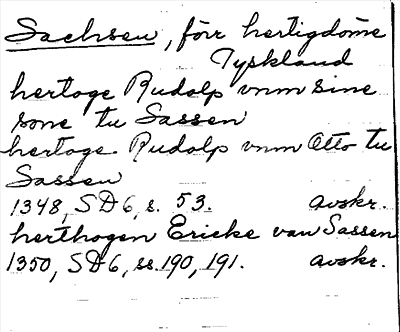 Sachsen, förr hertigdöme
Tyskland
hertoge Rudolp vnm sine
sone tu Sassen
hertoge Rudolp vnm Otto tu
Sassen
1348, SD6, s. 53. avskr.
herthogen Ericke van Sassen
1350, SD6, ss. 190, 191. avskr.